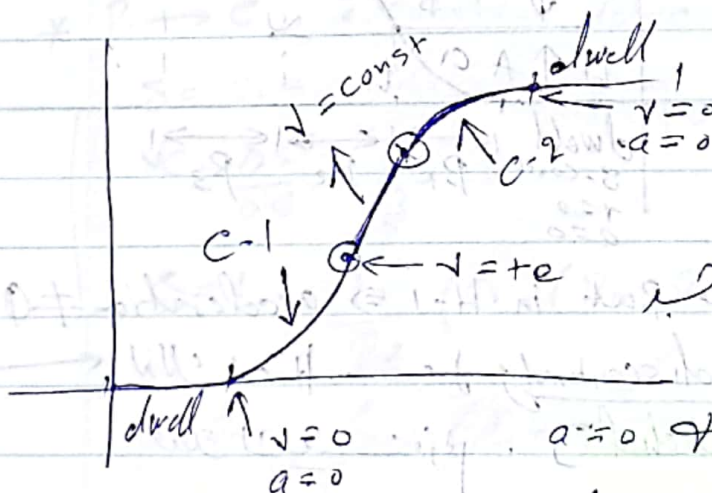 dwell
v = const
v = 0
a = 0
C-2
C-1
v = +e
dwell
v = 0
a = 0
a = 0